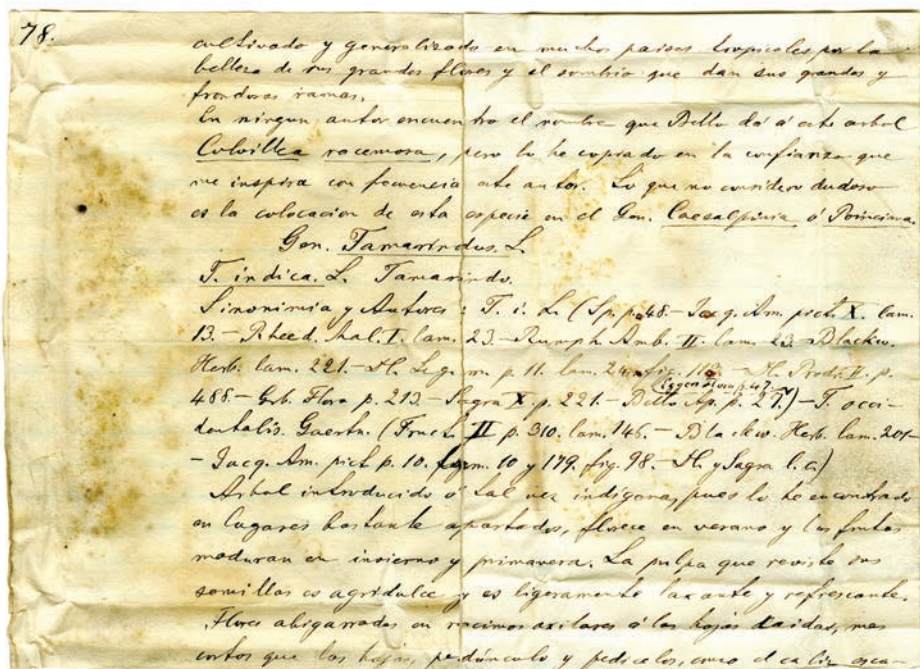 78.
cultivado y generalizado en muchos paises tropicales por la
belleza de sus grandes flores y el sombrio que dan sus grandes y
frondosas ramas.
En ningun autor encuentro el nombre que Bello dá á este arbol
Colvillea racemosa, pero lo he copiado en la confianza que
me inspira con frecuencia este autor. Lo que no considero dudoso
es la colocacion de esta especie en el Gen. Caesalpinia ó Poinciana.
Gen. Tamarindus. L.
T. indica. L. Tamarindo.
Sinonimia y Autores: T. i. L. (Sp. p. 48.- Jacq. Am. pict. X. lam.
13.- Rheed. Mal. I. lam. 23.- Rumph. Amb. II. lam. 23.- Blackw.
Herb. lam. 221.- H. Legum. p. 11. lam. 24. fig. 113.- H. Prodr. II. p.
(Eggers flora p. 47.
488.- Grb. Flora p. 213.- Sagra X. p. 221.- Bello Ap. p. 27.)- T. occi-
dentalis. Gaertn. (Fruct. II p. 310. lam. 146.- Blackw. Herb. lam. 201-
- Jacq. Am. pict p. 10. lam. 10 y 179. fig. 98.- H. y Sagra l. c.)
Arbol introducido ó tal vez indígena, pues lo he encontrado
en lugares bastante apartados, florece en verano y los frutos
maduran en invierno y primavera. La pulpa que reviste sus
semillas es agridulce y es ligeramente laxante y refrescante.
Flores abigarradas en racimos axilares á las hojas caidas, mas
cortos que las hojas, pedúnculo y pedicelos, como el caliz esca-